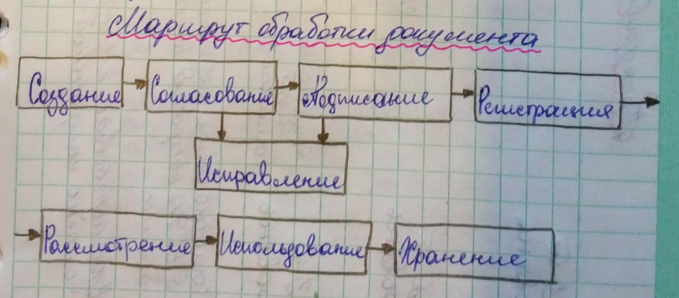 Маршрут обработки документа
Создание Согласование Подписание Регистрация
Исправление
Рассмотрение Использование Хранение